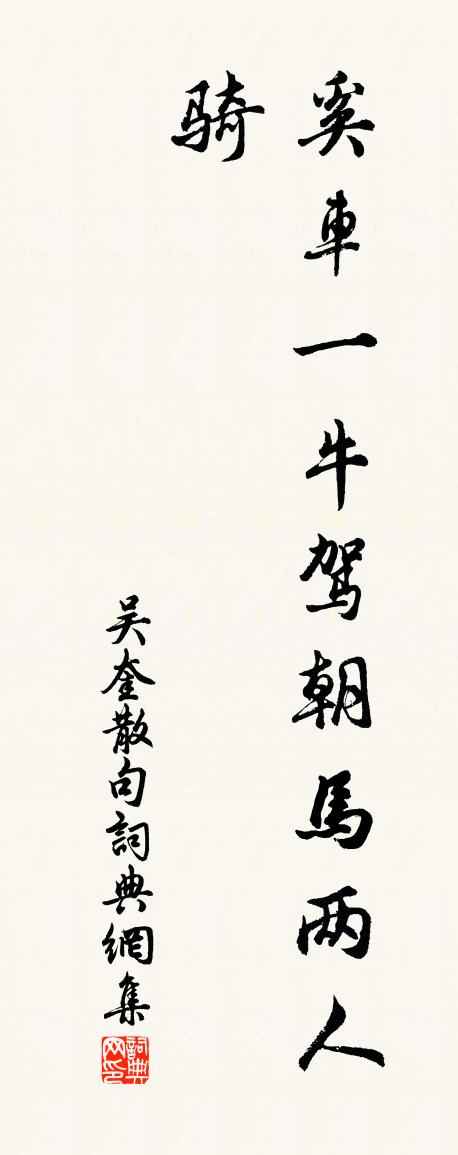 奚車一牛駕朝馬两人
騎
吴奎散句詞典網集
詞典网印